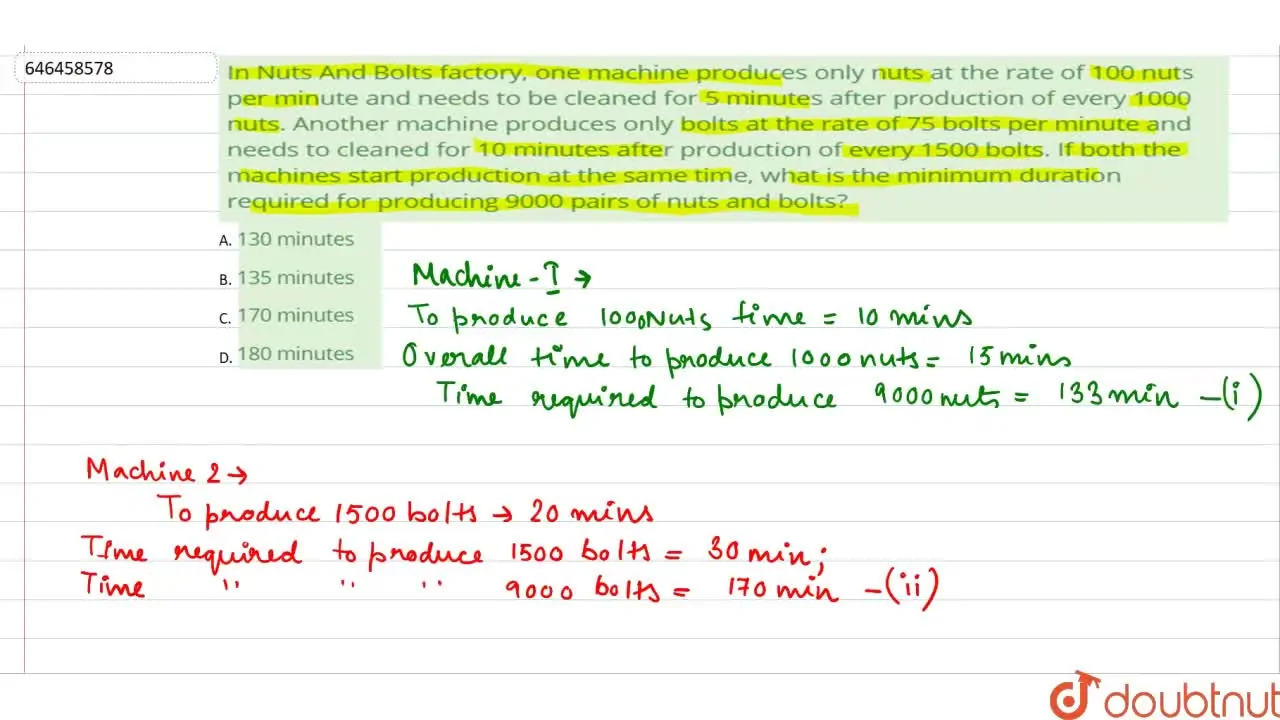 646458578
In Nuts And Bolts factory, one machine produces only nuts at the rate of 100 nuts
per minute and needs to be cleaned for 5 minutes after production of every 1000
nuts. Another machine produces only bolts at the rate of 75 bolts per minute and
needs to cleaned for 10 minutes after production of every 1500 bolts. If both the
machines start production at the same time, what is the minimum duration
required for producing 9000 pairs of nuts and bolts?
A. 130 minutes
B. 135 minutes
C. 170 minutes
D. 180 minutes
Machine - I →
To produce 1000 Nuts time = 10 mins
Overall time to produce 1000 nuts = 15 mins
Time required to produce 9000 nuts = 133 min - (i)
Machine 2 →
To produce 1500 bolts → 20 mins
Time required to produce 1500 bolts = 30 min;
Time " " " 9000 bolts = 170 min - (ii)
doubtnut